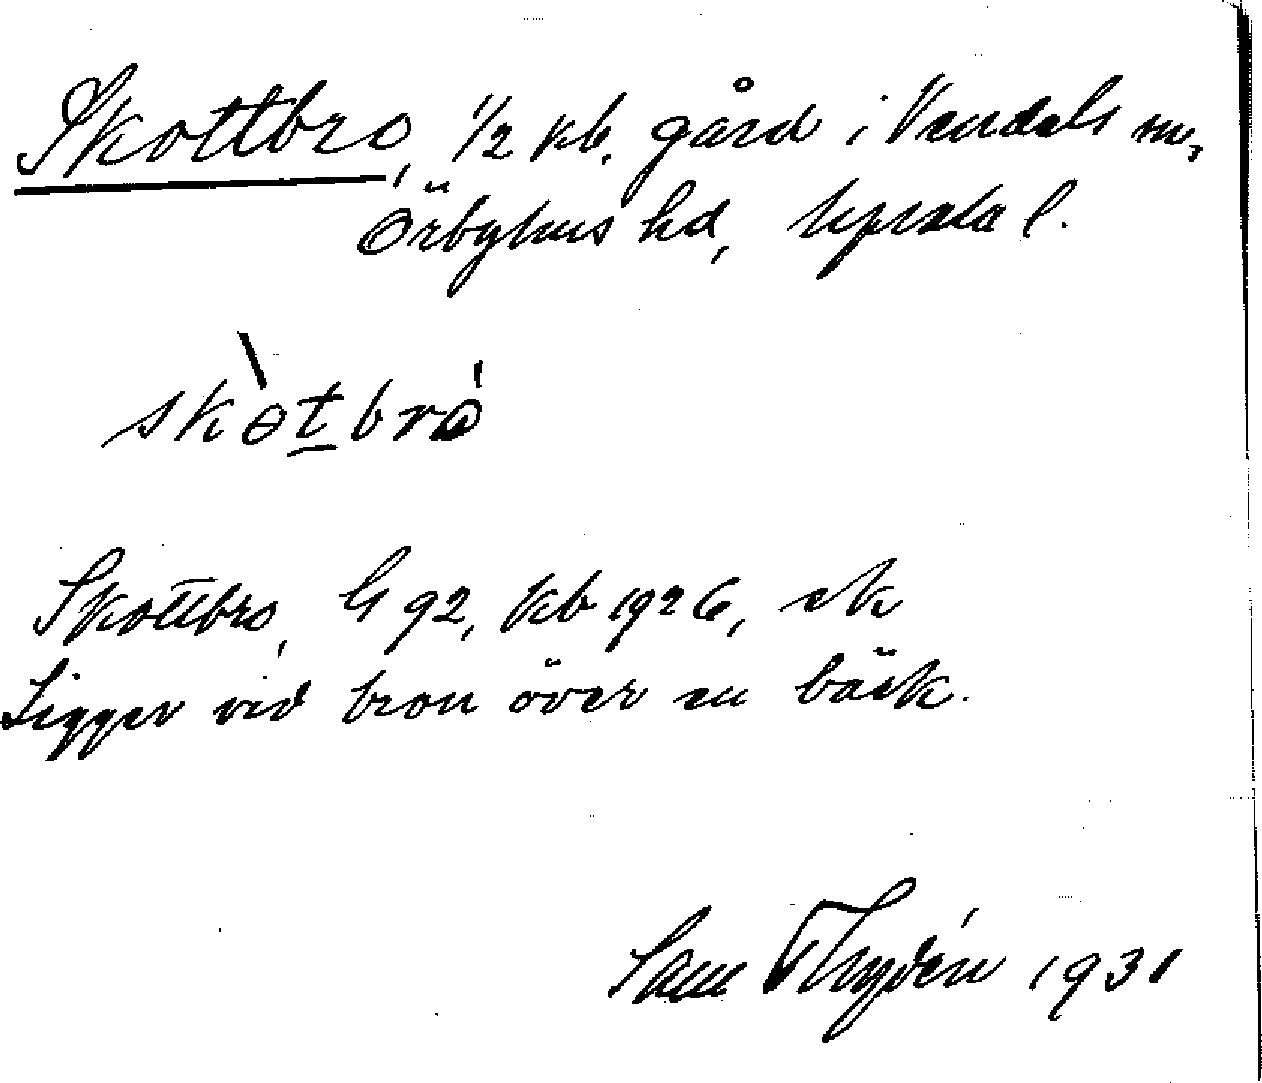 Skottbro, 1/2 kb. gård i Vendels sn,
Örbyhus hd, Upsala l.
skòtbró
Skottbro, G 92, kb 1926, ek
Ligger vid bron över en bäck.
Sam Thydén 1931